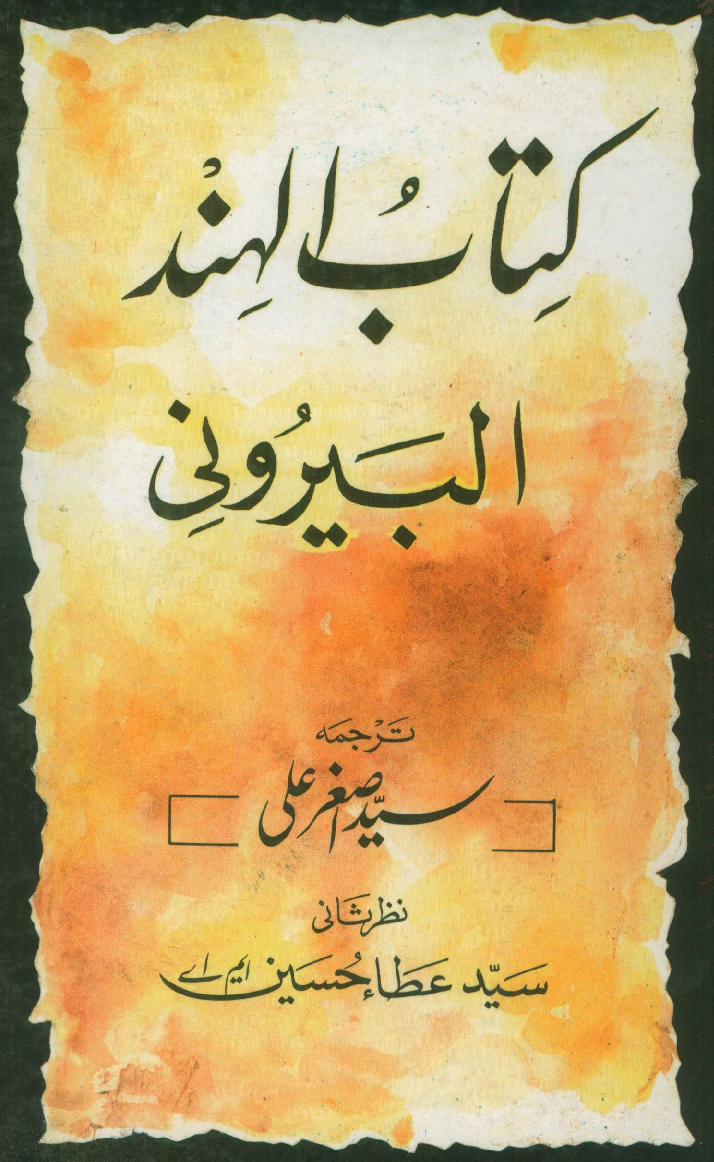 کِتابُ الہِنْد
البَیرُونِی
تَرْجمَہ
سیّد اصغر علی
نظر ثانی
سَیّد عَطَاء حُسَین ایم اے